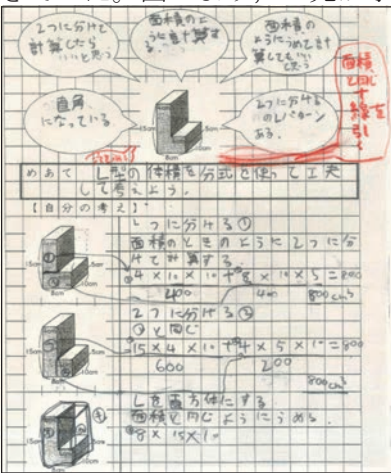 2つに分けて
計算したら
いいと思う
面積のよ
うに直計算す
る。
面積の
ようにうめて計
算してもいい
と思う
直角
になっている
2つに分ける
のしパターン
ある。
面積
と同じ
す線を
引く
15cm
5cm
10cm
8cm
めあて L型の体積を公式を使って工夫
して考えよう。
【自分の考え】
2つに分ける①
面積のときのように2つに分
けて計算する。
4×10×10+8×10×5=800
400 400 800cm³
15cm
5cm
10cm
8cm
2つに分ける②
①と同じ
15×4×10+4×5×10=800
600 200
800cm³
15cm
5cm
10cm
8cm
Lを直方体にする
面積と同じようにうめる。
8×15×1
15cm
5cm
10cm
8cm